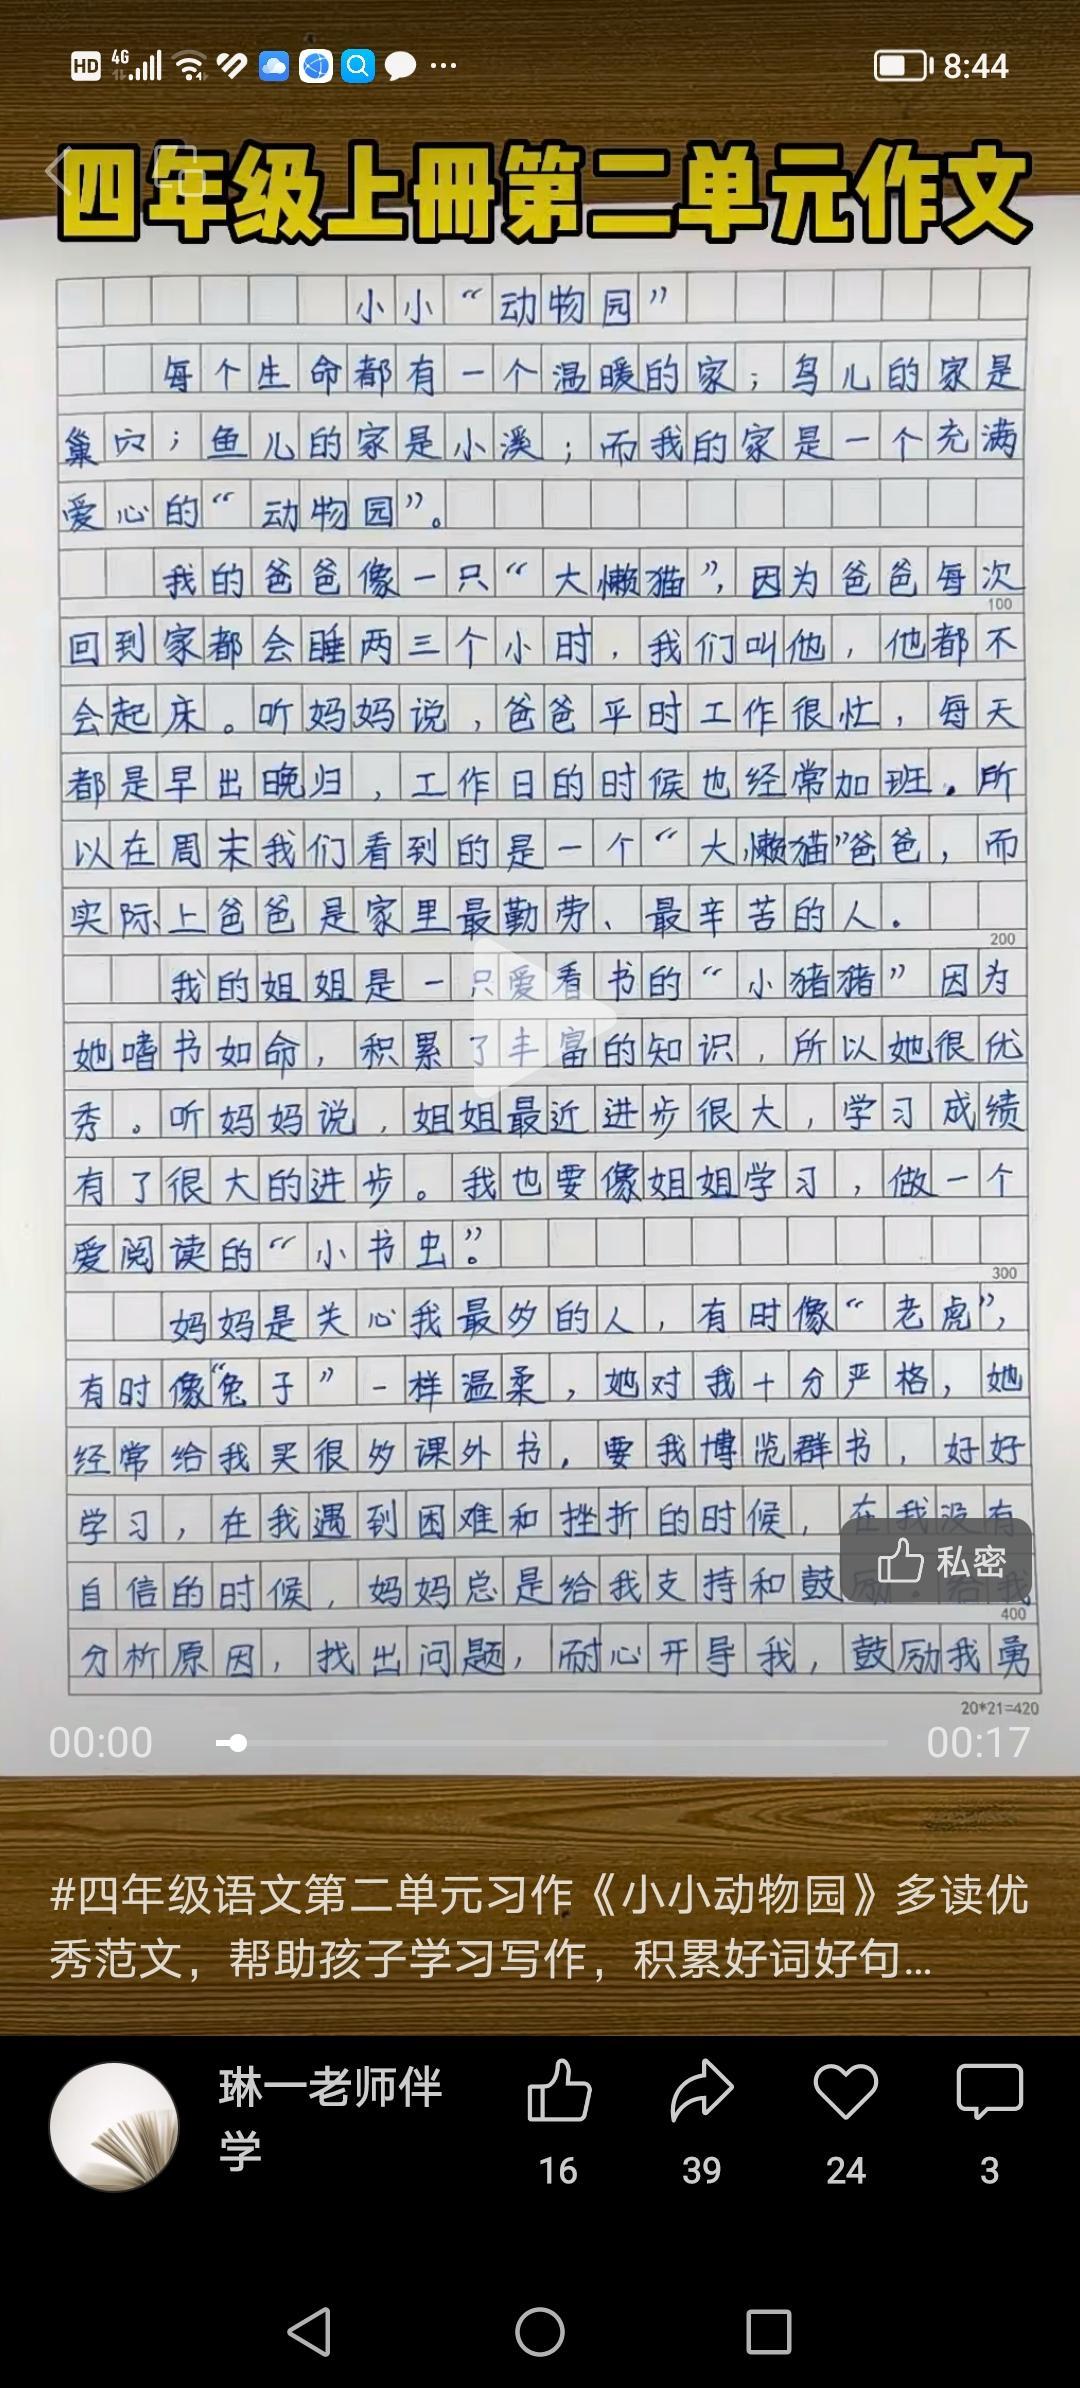 HD 4G 8:44
四年级上册第二单元作文
小小“动物园”
每个生命都有一个温暖的家；鸟儿的家是
巢穴；鱼儿的家是小溪；而我的家是一个充满
爱心的“动物园”。
我的爸爸像一只“大懒猫”，因为爸爸每次
100
回到家都会睡两三个小时，我们叫他，他都不
会起床。听妈妈说，爸爸平时工作很忙，每天
都是早出晚归，工作日的时候也经常加班。所
以在周末我们看到的是一个“大懒猫”爸爸，而
实际上爸爸是家里最勤劳、最辛苦的人。
200
我的姐姐是一只爱看书的“小猪猪”因为
她嗜书如命，积累了丰富的知识，所以她很优
秀。听妈妈说，姐姐最近进步很大，学习成绩
有了很大的进步。我也要像姐姐学习，做一个
爱阅读的“小书虫”。
300
妈妈是关心我最多的人，有时像“老虎”，
有时像“兔子”一样温柔，她对我十分严格，她
经常给我买很多课外书，要我博览群书，好好
学习，在我遇到困难和挫折的时候，在我没有
自信的时候，妈妈总是给我支持和鼓励。给我
私密
400
分析原因，找出问题，耐心开导我，鼓励我勇
20*21=420
00:00 00:17
#四年级语文第二单元习作《小小动物园》多读优
秀范文，帮助孩子学习写作，积累好词好句...
琳一老师伴
学
16 39 24 3